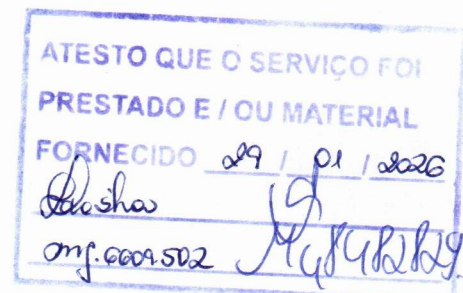 ATESTO QUE O SERVIÇO FOI
PRESTADO E / OU MATERIAL
FORNECIDO 29 / 01 / 2026
mg.6609.502 M48482829